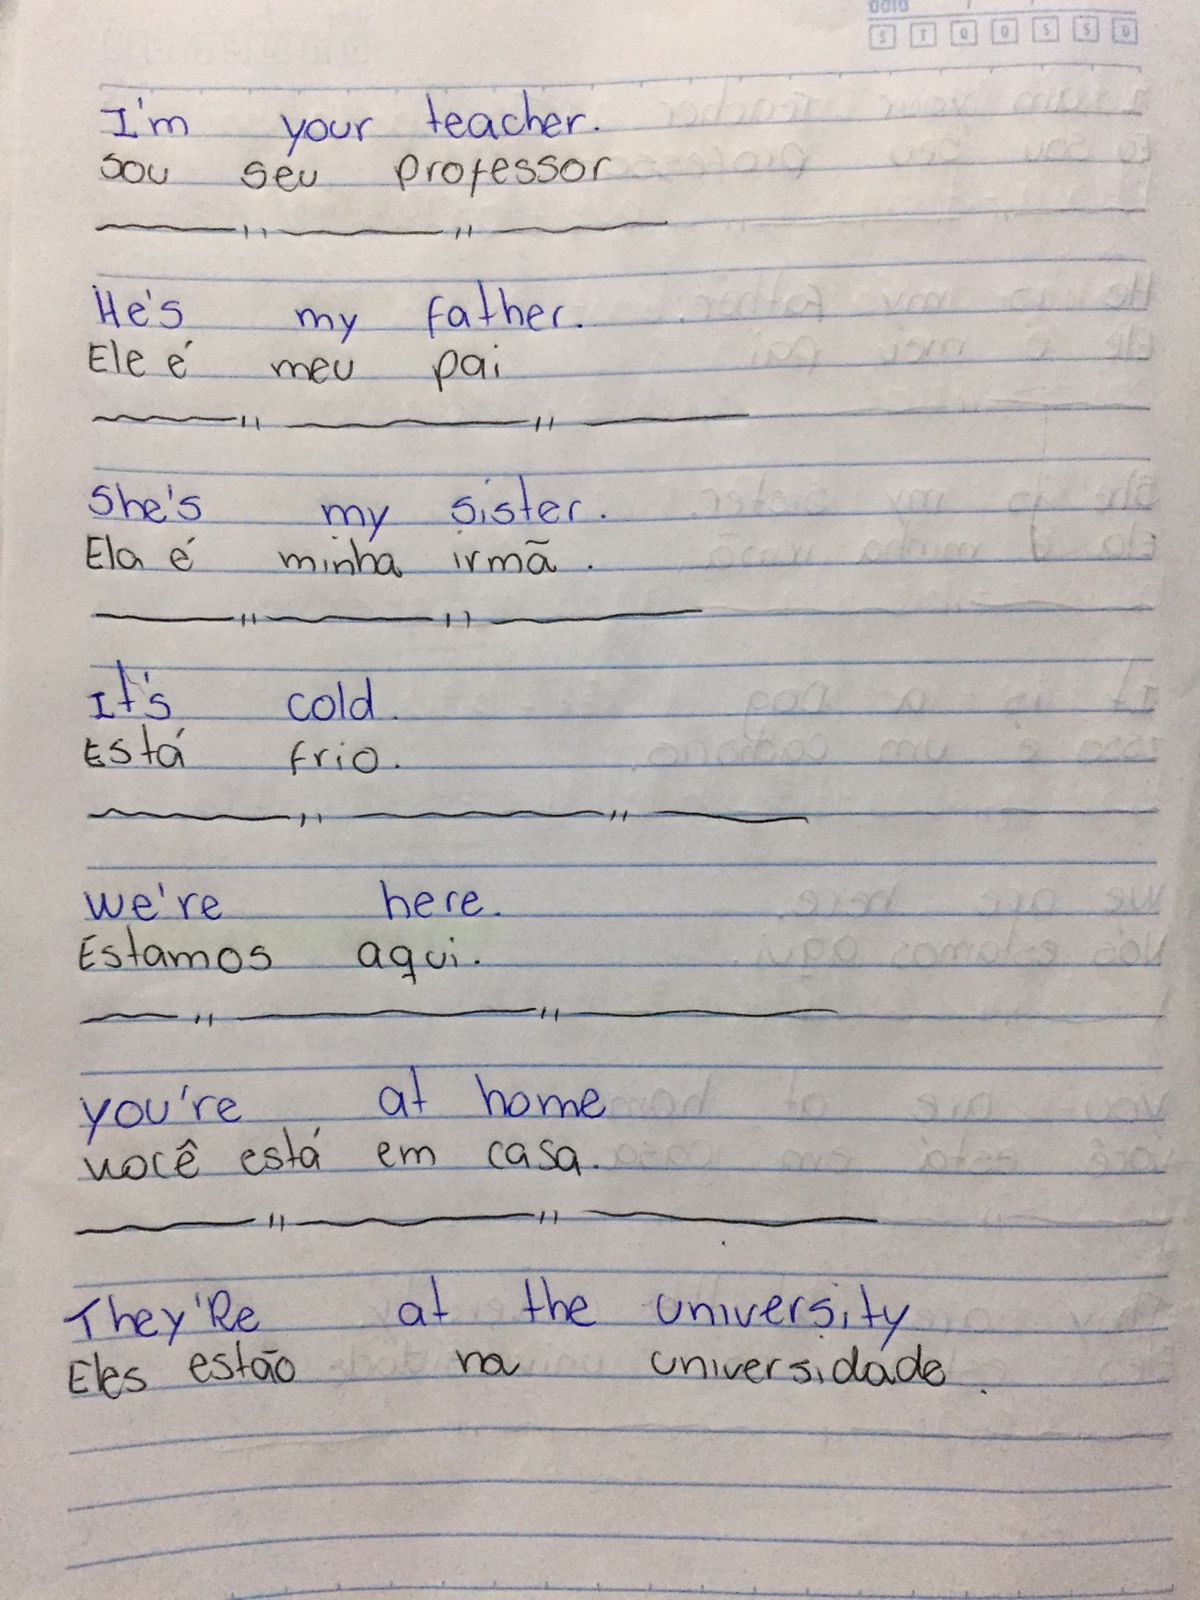 data / /
S T Q Q S S D
I'm your teacher.
Sou seu professor
He's my father.
Ele é meu pai
She's my sister.
Ela é minha irmã.
It's cold.
Está frio.
we're here.
Estamos aqui.
you're at home
você está em casa.
They'Re at the university
Eles estão na universidade.